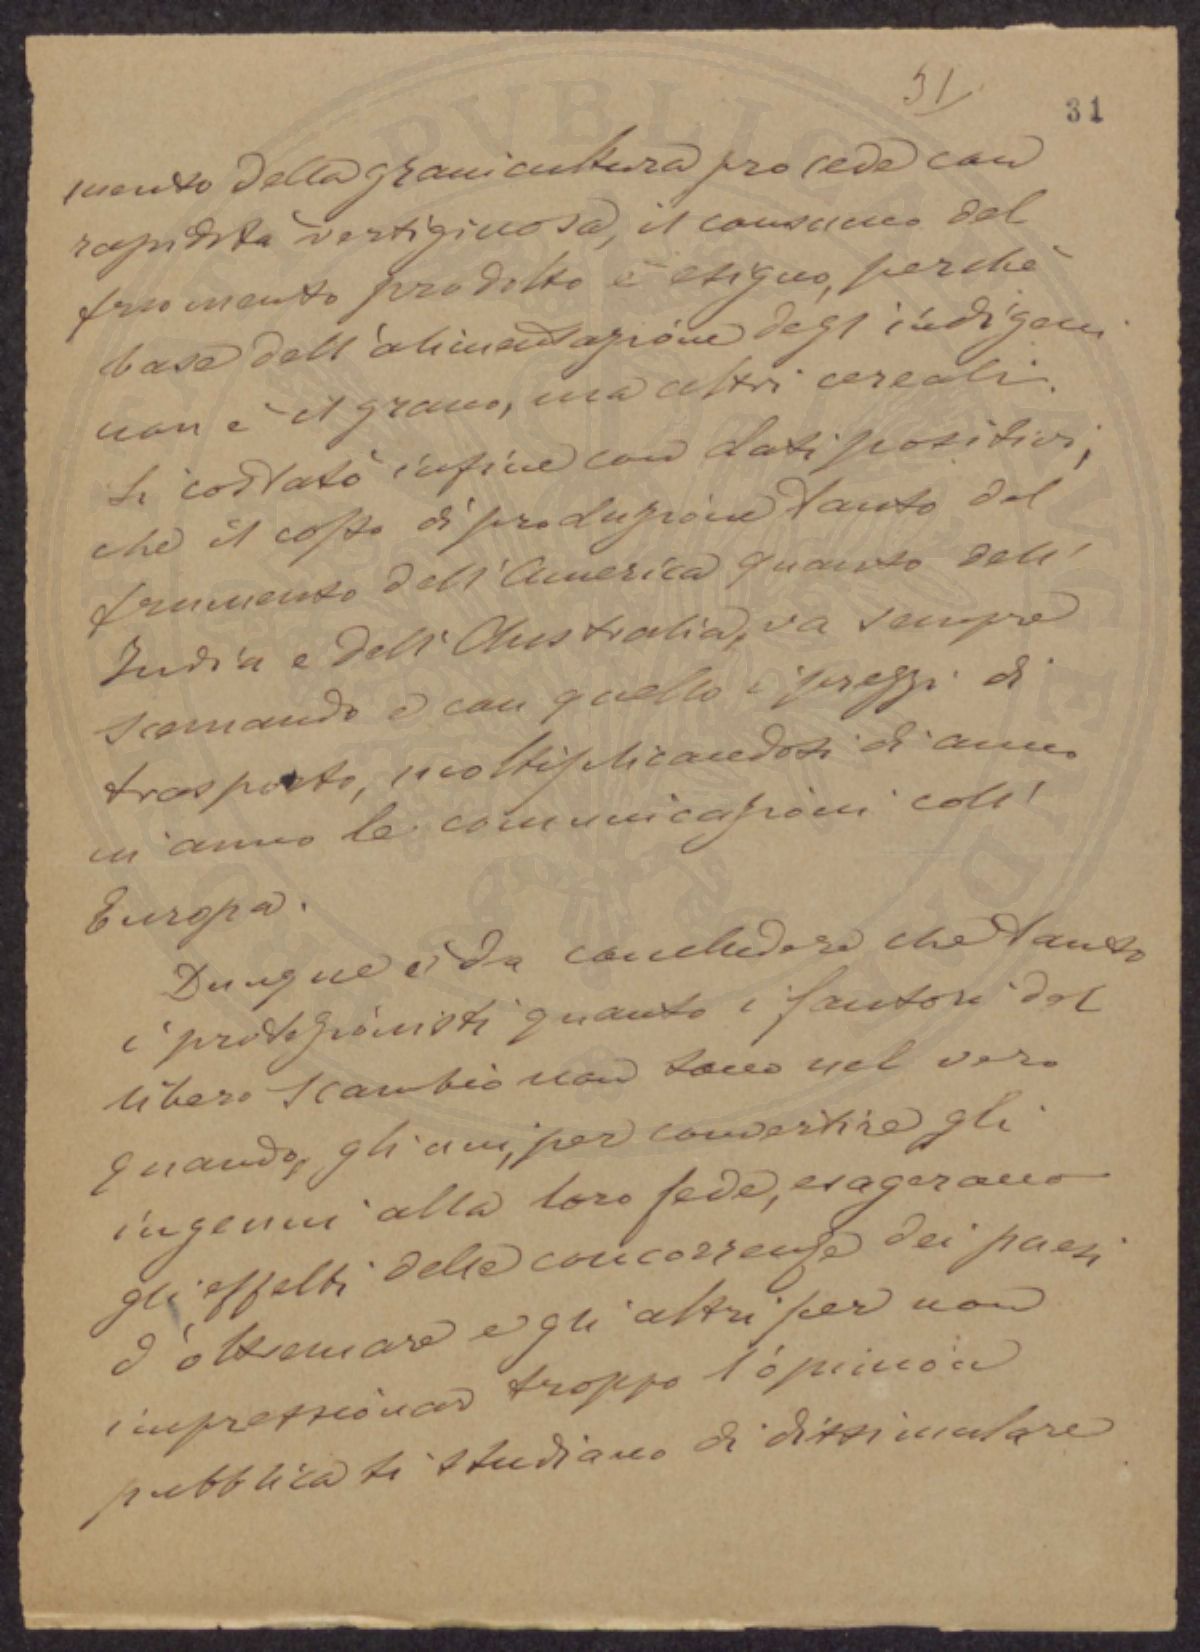 31
31
mento della granicultura procede con
rapidità vertiginosa, il consumo del
frumento prodotto è esiguo, perchè
base dell'alimentazione degl'indigeni
non è il grano, ma altri cereali.
Si costatò infine con dati positivi,
che il costo di produzione tanto del
frumento dell'America quanto dell'
India e dell'Australia, va sempre
scemando e con quello i prezzi di
trasporto, moltiplicandosi di anno
in anno le comunicazioni coll'
Europa.
Dunque è da concludere che tanto
i protezionisti quanto i fautori del
libero scambio non sono nel vero
quando, gli uni, per convertire gli
ingenui alla loro fede, esagerano
gli effetti della concorrenza dei paesi
d'oltremare e gli altri per non
impressionar troppo l'opinion
pubblica si studiano di dissimulare